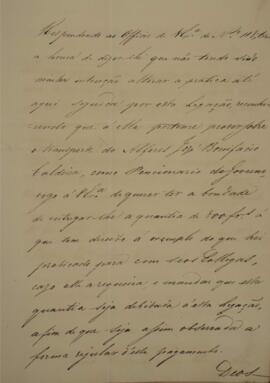 Respondendo ao Officio de V.Sª de Nº 118, tenho
a honra de dizer-lhe que não tendo sido
minha intenção alterar a pratica até
aqui seguida por esta Legação, reconhe-
cendo que a ella pertence prover sobre
o transporte do Alferes José Bonifacio
Caldeira, como Pencionario do Governo,
rogo á V.Sª de querer ter a bondade
de entregar-lhe a quantia de 800 fcs. a
que tem direito á exemplo do que ha
praticado para com seos Collegas,
caso elle a requeira, e mandar que esta
quantia seja debitada á esta Legação,
afim de que seja assim observada a
forma regular deste pagamento.
Deos